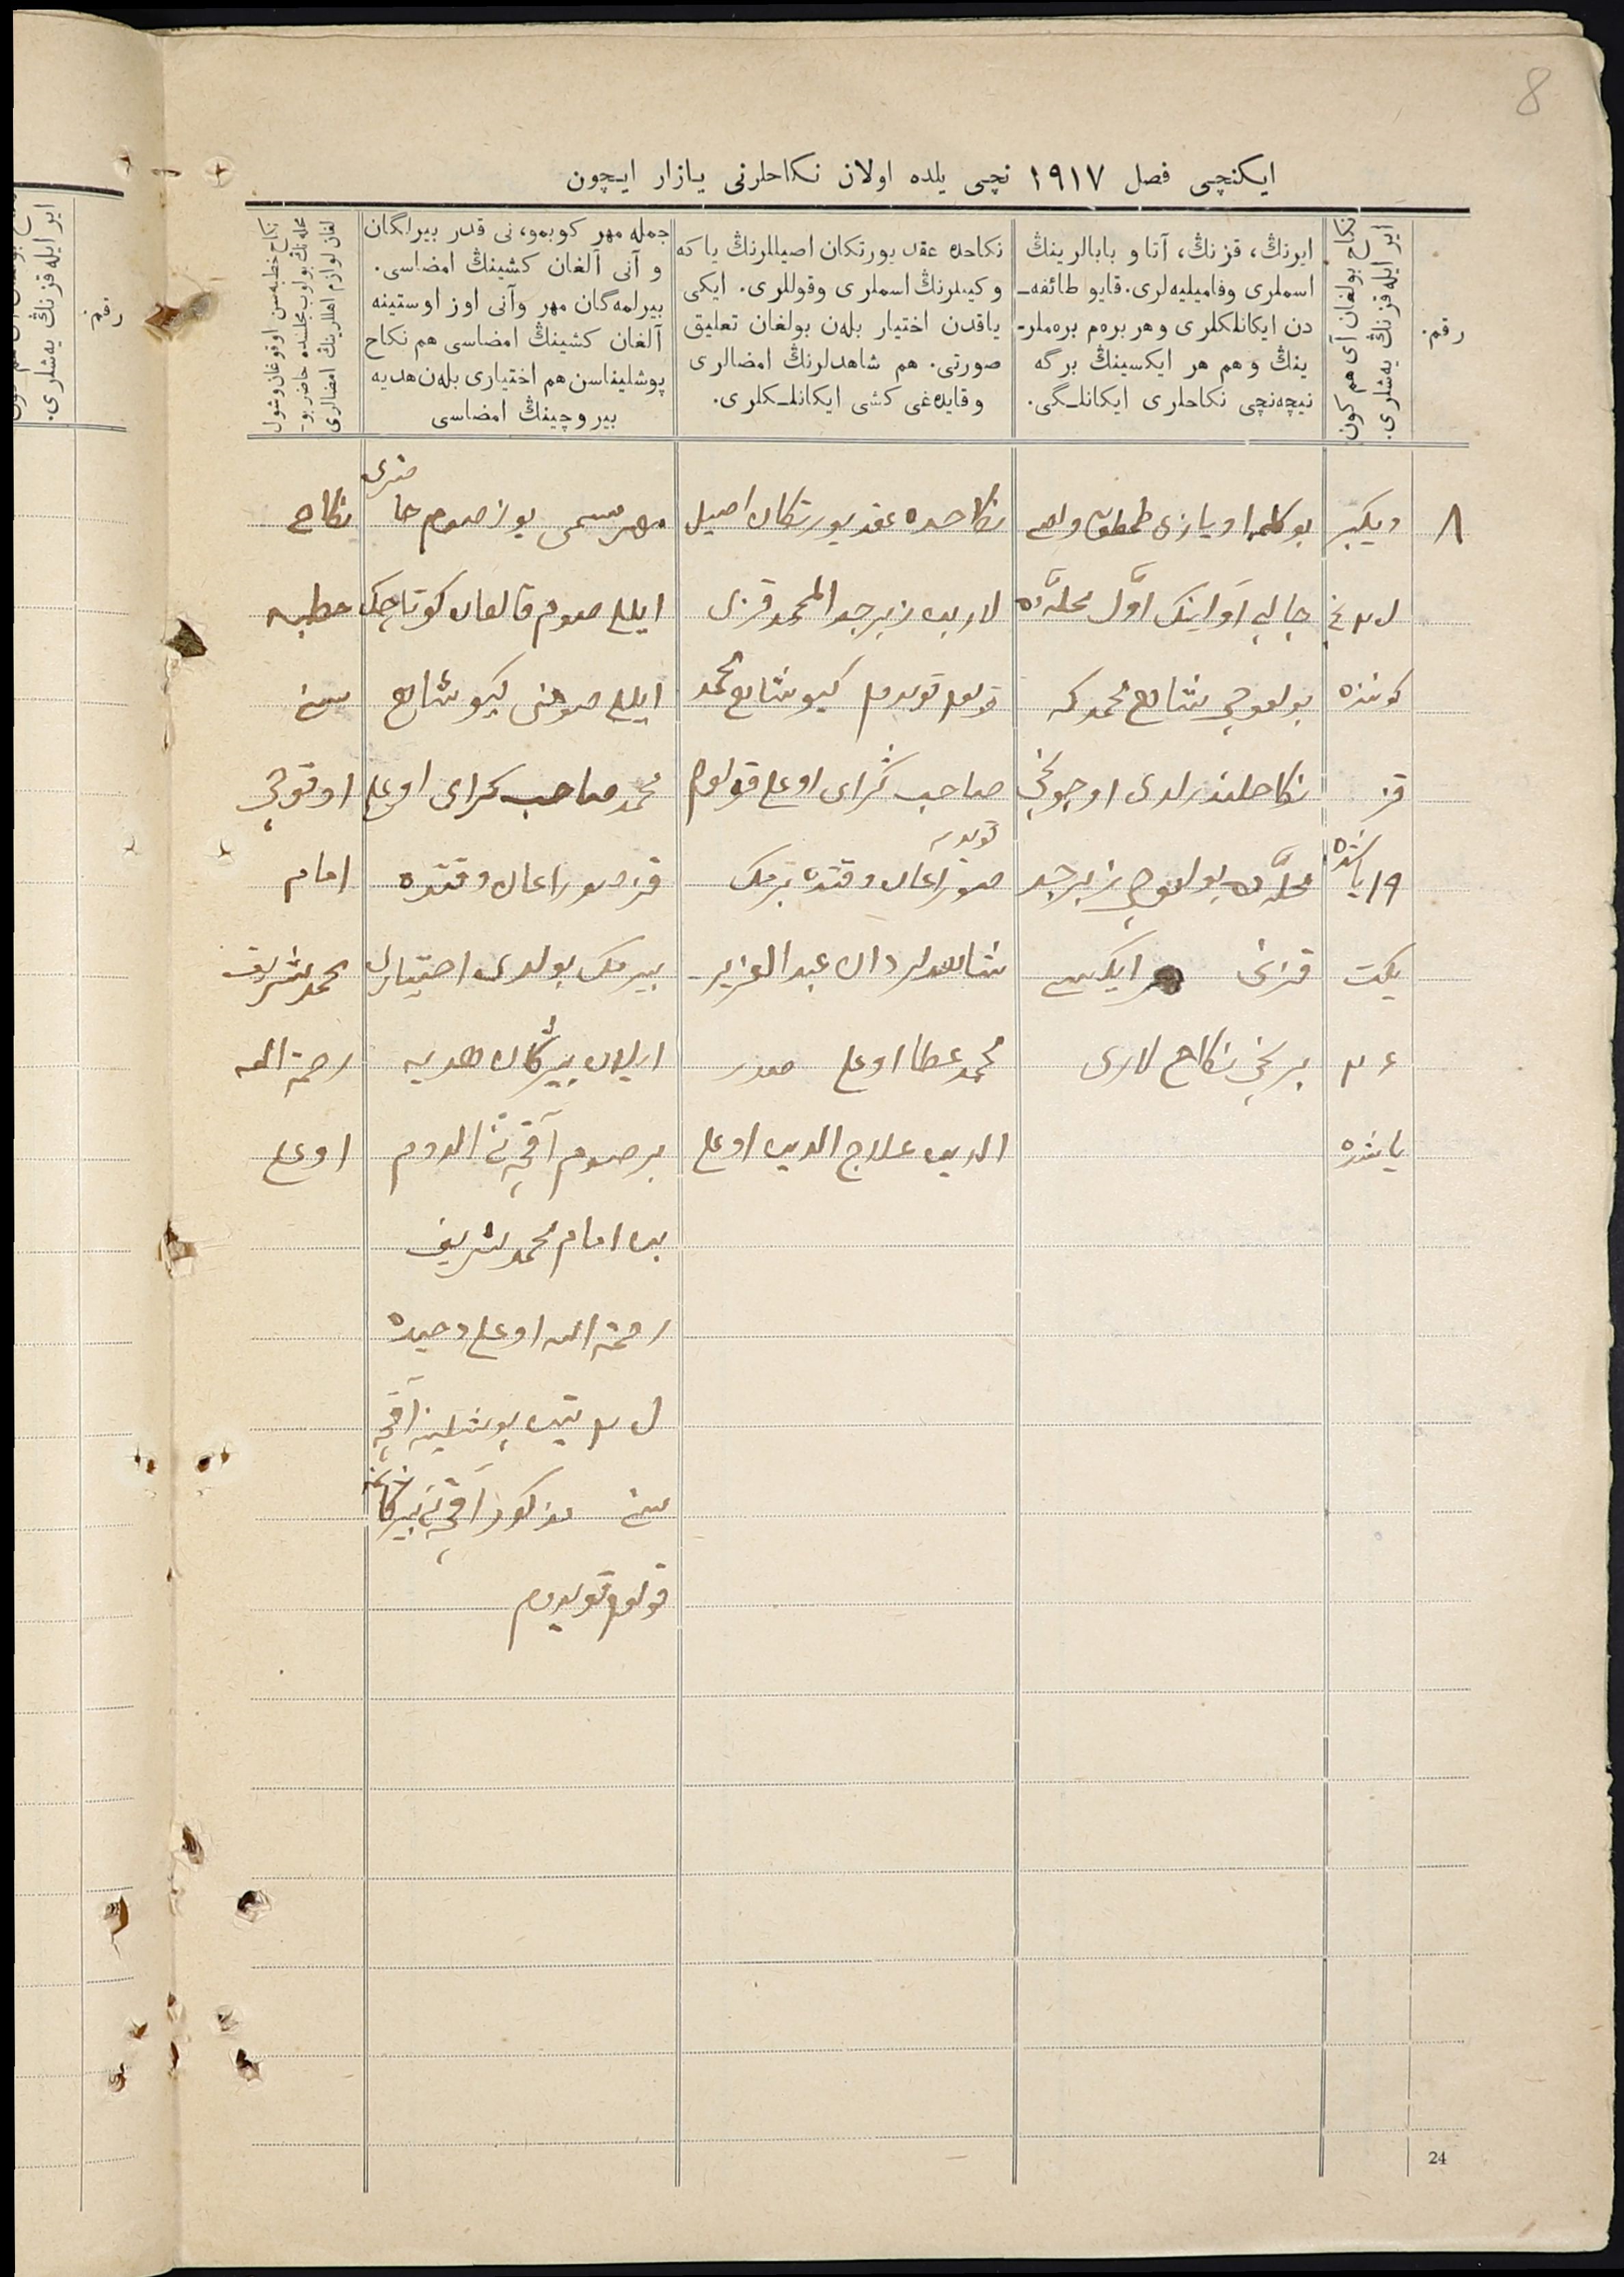 8
ایکنچی فصل ١٩١٧ نچی یلده اولان نکاحلرنی یازار ایچون
رقم.
نکاح بولغان آی هم کون
ایر ایله قزنڭ یه‌شلری.
ایرنڭ، قزنڭ، آتا و بابالرینڭ
اسملری وفامیلیه‌لری. قایو طائفه‌ـ
دن ایکانلکلری و هر بره‌م بره‌ملرـ
ینڭ و هم هر ایکسینڭ برگه
نیچه‌نچی نکاحلری ایکانلـگی.
نکاحده عقد یورتکان اصیللرنڭ یاکه
وکیللرنڭ اسملری وقوللری. ایکی
یاقدن اختیار بله‌ن بولغان تعلیق
صورتی. هم شاهدلرنڭ امضالری
وقایده‌غی کشی ایکانلـکلری.
جمله مهر کوبمو، نی قدر بیرلگان
و آنی آلغان کشینڭ امضاسی.
بیرلمه‌گان مهر وآنی اوز اوستینه
آلغان کشینڭ امضاسی هم نکاح
پوشلیناسن هم اختیاری بله‌ن هدیه
بیروچینڭ امضاسی
نکاح خطبه‌سن اوقوغان وشول
محله‌نڭ بولوب مجلسده حاضر بوـ
لغان لوازم اهللرینڭ امضالری
٨
دیکبر
کوننده
قز
١٩ یاشنده
یکت
٢٤
یاشنده
بوکلمه اویازی
جالی اَوِاینک اوّل محلّه ده
بولغوچی شایخ محمد که
نکاحلندرلدی اوچونچی
محلّه ده بولغوچی زبرجد
قزنی هر ایکیسی
برنچی نکاح لاری
نکاحده عقد یورتکان اصیل
لاردن زبرجد المحمد قزی
قولم قویدم کیو شایخ محمد
صاحب گرای اوغلی قولوم
قویدم
صوراغان وقتده بیرمک
شاهدلردان عبدالعزیز
محمد عطا اوغلی صدر
الدین علاج الدین اوغلی
مهر سمی یوز صوم حاضری
ایللی صوم قالغان کوتاچک
ایللی صومنی کیو شایخ
محمد صاحب گرای اوغلی
قز صوراغان وقتده
بیرمک بولدی اختیاری
ایلان بیرگان هدیه
بر صوم آقچه نی الدوم
من امام محمد شریف
رحمة الله اوغلی
تین پوشلینه آقچه
سن مذکور آقچه نی بیرکانـ
قولوم قویدوم
نکاح
خطبه
سنی
اوقوچی
امام
محمد شریف
رحمة الله
اوغلی
24
رقم.
ایر ایله قزنڭ یه‌شلری.